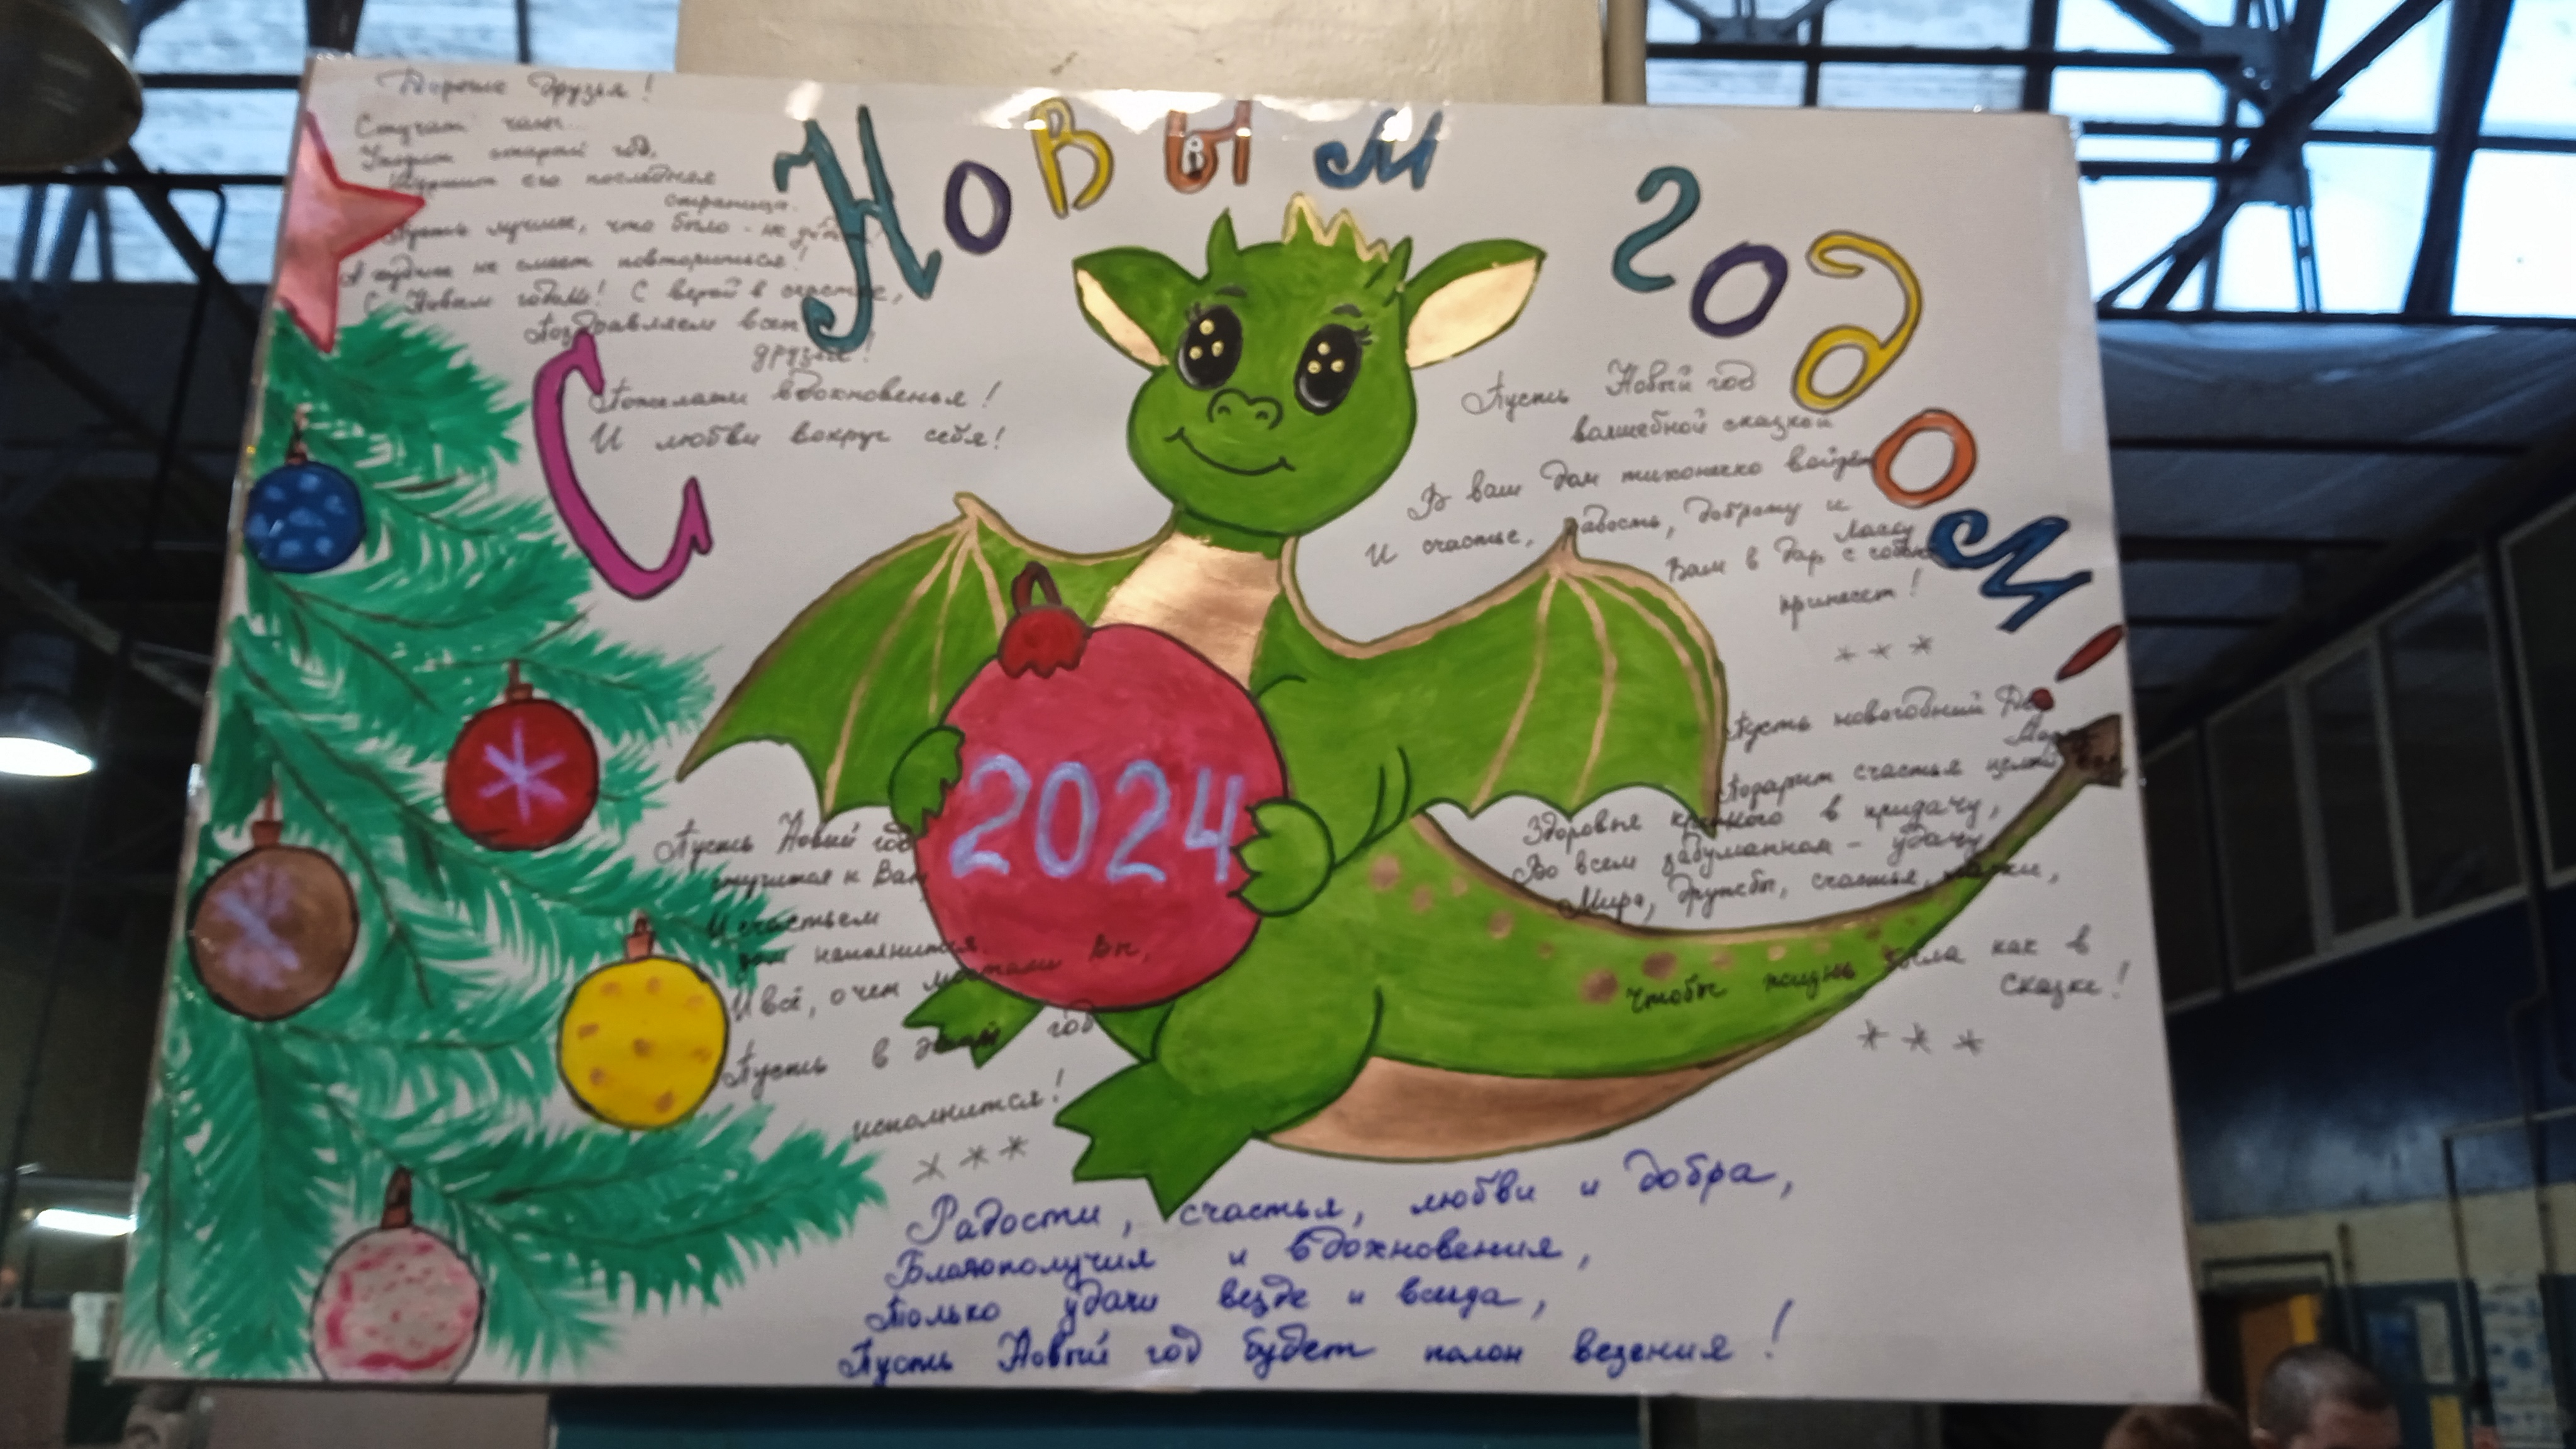 С Новым годом!
Дорогие друзья!
Стучат часы...
Уходит старый год,
его последняя
страница.
Пусть лучшее, что было - не
А худшее не смеет повториться!
С Новым годом! С верой в счастье,
Поздравляем всех
друзья!
Пожелаем вдохновенья!
И любви вокруг себя!
Пусть Новый год
волшебной сказкой
В ваш дом тихонечко войдет
И счастье, радость, доброту и
ласку
Вам в дар с собою
принесет!
* * *
Пусть новогодний Дед
Мороз
Подарит счастья целый
Здоровья крепкого в придачу,
Во всем задуманном - удачу,
Мира, дружбы, счастья, ласки,
Чтобы жизнь была как в
сказке!
* * *
2024
Пусть Новый год
стучится к Вам,
И счастьем
дом наполнится.
И всё, о чем мечтали Вы,
Пусть в этот год
исполнится!
* * *
Радости, счастья, любви и добра,
Благополучия и вдохновения,
Только удачи везде и всегда,
Пусть Новый год будет полон везения!